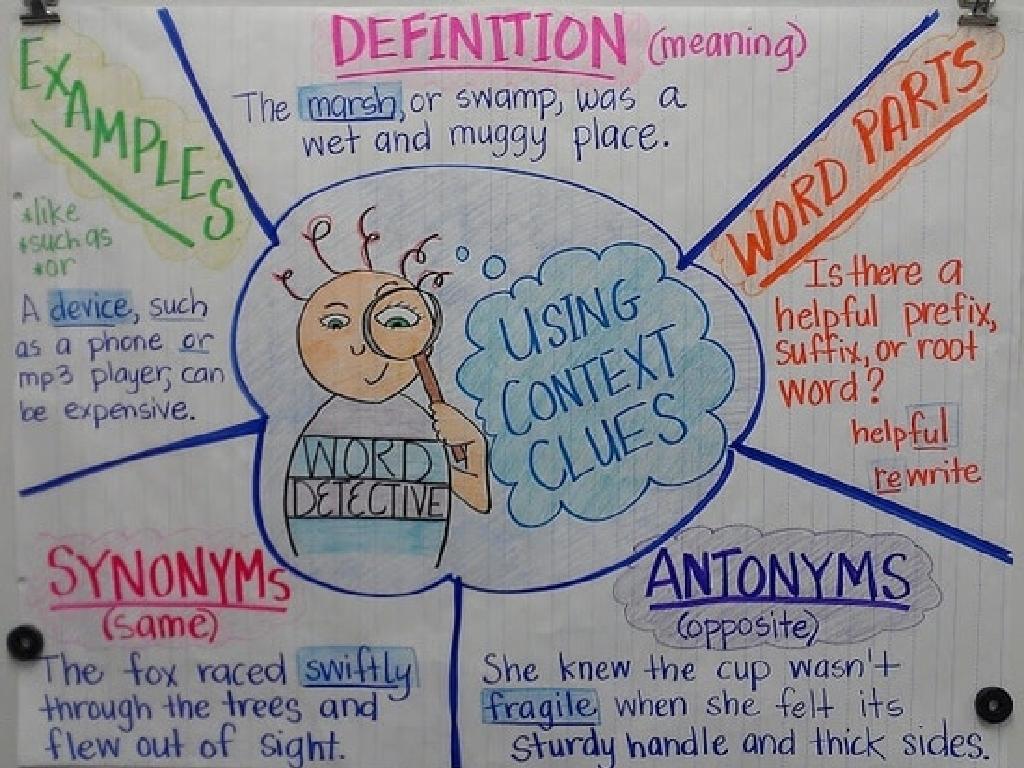 DEFINITION (meaning)
The marsh, or swamp, was a
wet and muggy place.
EXAMPLES
*like
*such as
*or
A device, such
as a phone or
mp3 player, can
be expensive.
WORD PARTS
Is there a
helpful prefix,
suffix, or root
word?
helpful
rewrite
USING
CONTEXT
CLUES
WORD
DETECTIVE
SYNONYMs
(same)
The fox raced swiftly
through the trees and
flew out of sight.
ANTONYMS
(opposite)
She knew the cup wasn't
fragile when she felt its
sturdy handle and thick sides.